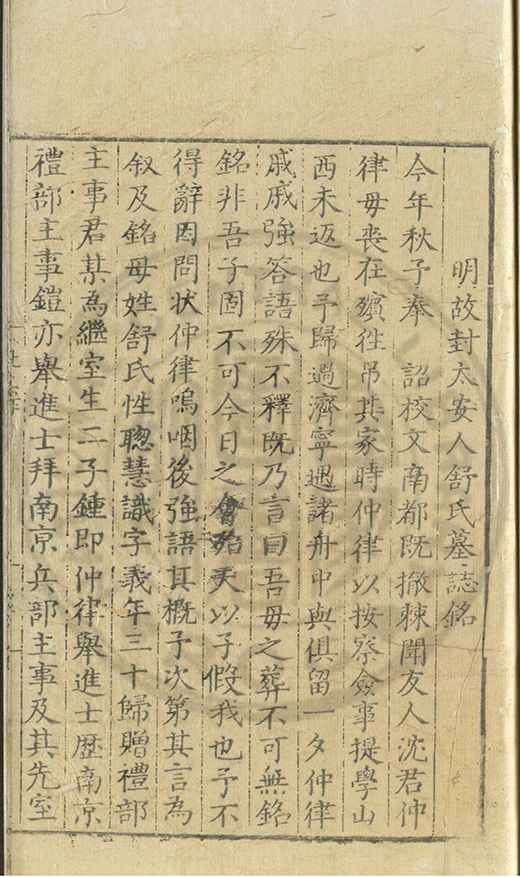 明故封太安人舒氏墓誌銘
今年秋予奉　詔校文南都既撤棘聞友人沈君仲
律母喪在殯徃吊其家時仲律以按察僉事提學山
西未返也予歸過濟寧遇諸舟中與俱留一夕仲律
戚戚強答語殊不釋既乃言曰吾母之葬不可無銘
銘非吾子固不可今日之會殆天以子假我也予不
得辭因問狀仲律嗚咽後強語其概予次第其言為
叙及銘母姓舒氏性聰慧識字義年三十歸贈禮部
主事君某為繼室生二子鍾即仲律舉進士歷南京
禮部主事鎧亦舉進士拜南京兵部主事及其先室